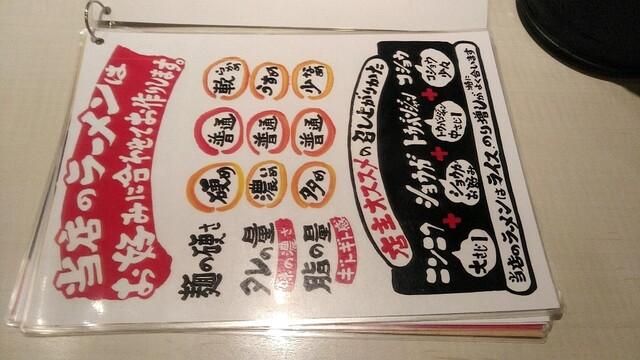 当店のラーメンは
お好みに合わせてお作りします。
麺の硬さ 硬め 普通 軟らかめ
タレの量 味の濃さ 濃いめ 普通 うすめ
脂の量 ギトギト感 多め 普通 少なめ
店主オススメの召し上がりかた
ニンニク + ショウガ + トウバンジャン + コショウ
大さじ1 ショウガお好み 中さじ1 コショウ少々
当店のラーメンはライス、のり増しが特によく合います